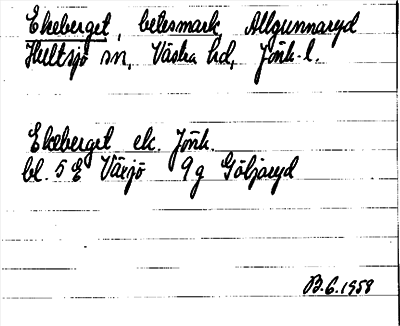 Ekeberget, betesmark, Allgunnaryd
Hultsjö sn, Västra hd, Jönk. l.
Ekeberget ek. Jönk.
bl. 5 E Växjö 9 g Göljaryd
B.G. 1958